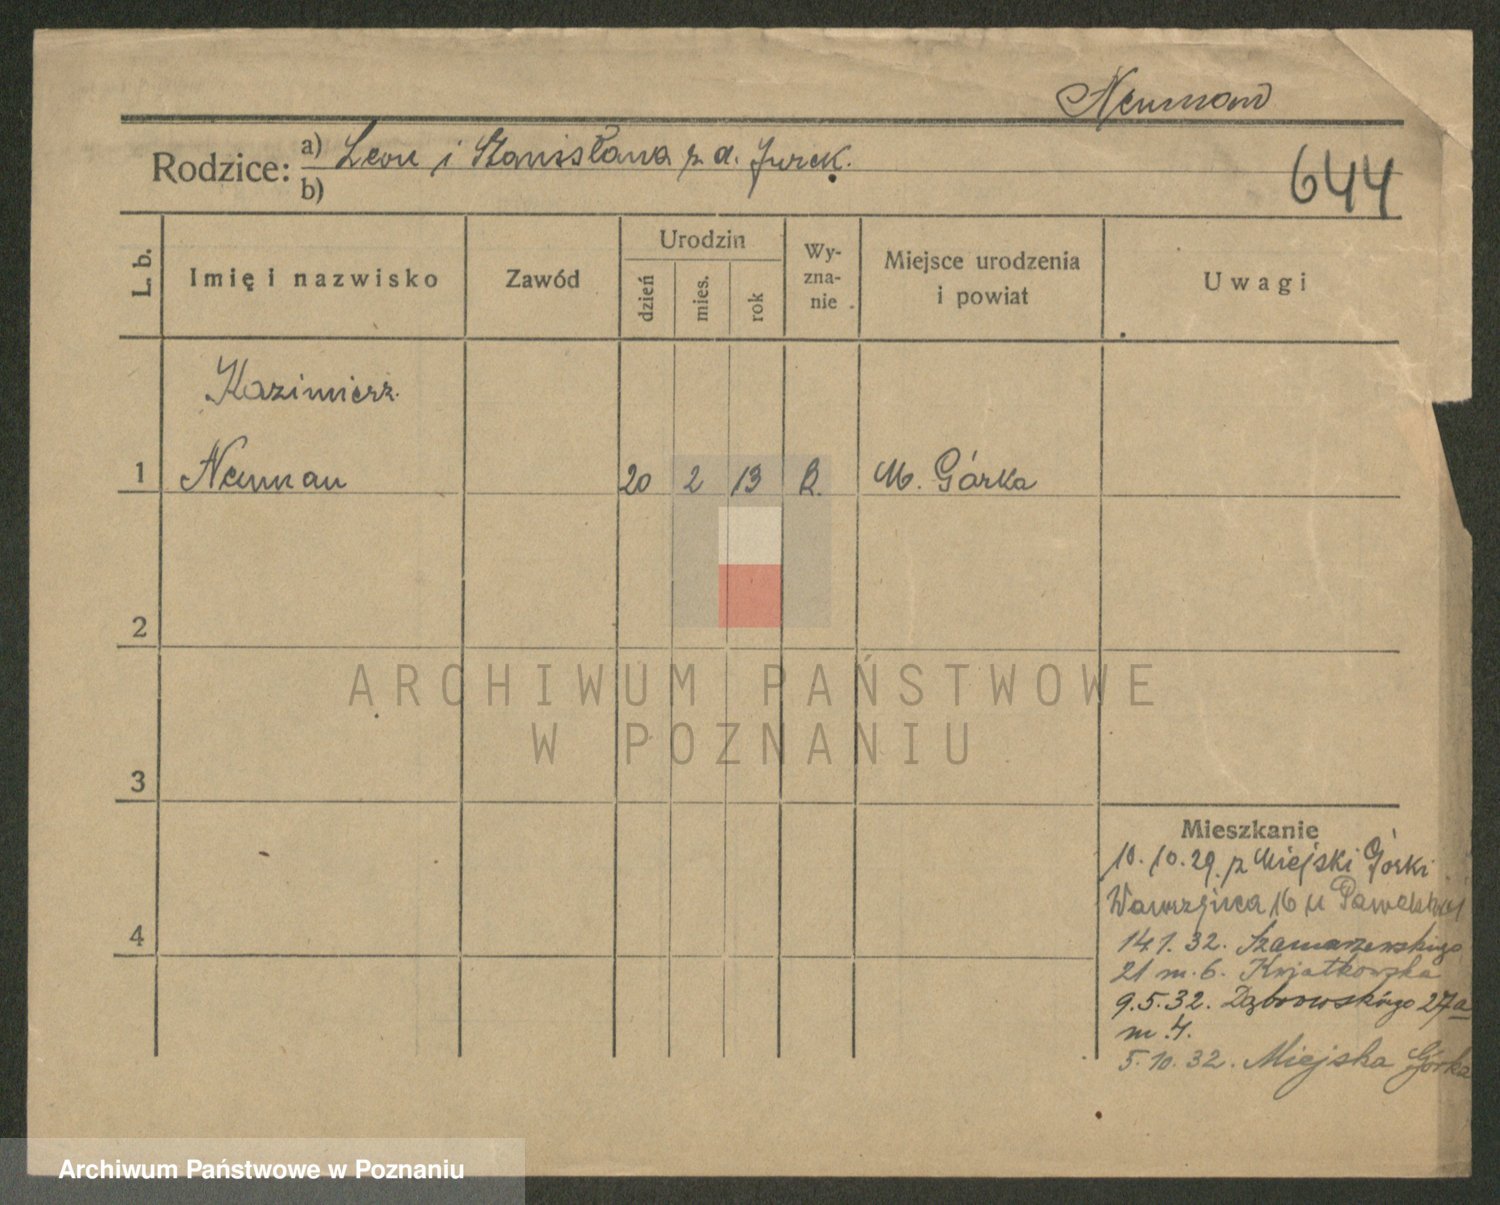 Neuman
Rodzice: a) Leon i Stanisława z d. Jurek.
b)
644
L. b.
Imię i nazwisko
Zawód
Urodzin
dzień
mies.
rok
Wy-
zna-
nie
Miejsce urodzenia
i powiat
Uwagi
Kazimierz
1 Neuman 20 2 13 R. M. Górka
2
3
4
ARCHIWUM PAŃSTWOWE
W POZNANIU
Mieszkanie
10.10.29. z Miejski Górki
Wawrzyńca 16 u
14.1.32. Szamarzewskiego
21 m. 6. Kwiatkowska
9.5.32. Dąbrowskiego 27a
m. 4.
5.10.32. Miejska Górka
Archiwum Państwowe w Poznaniu